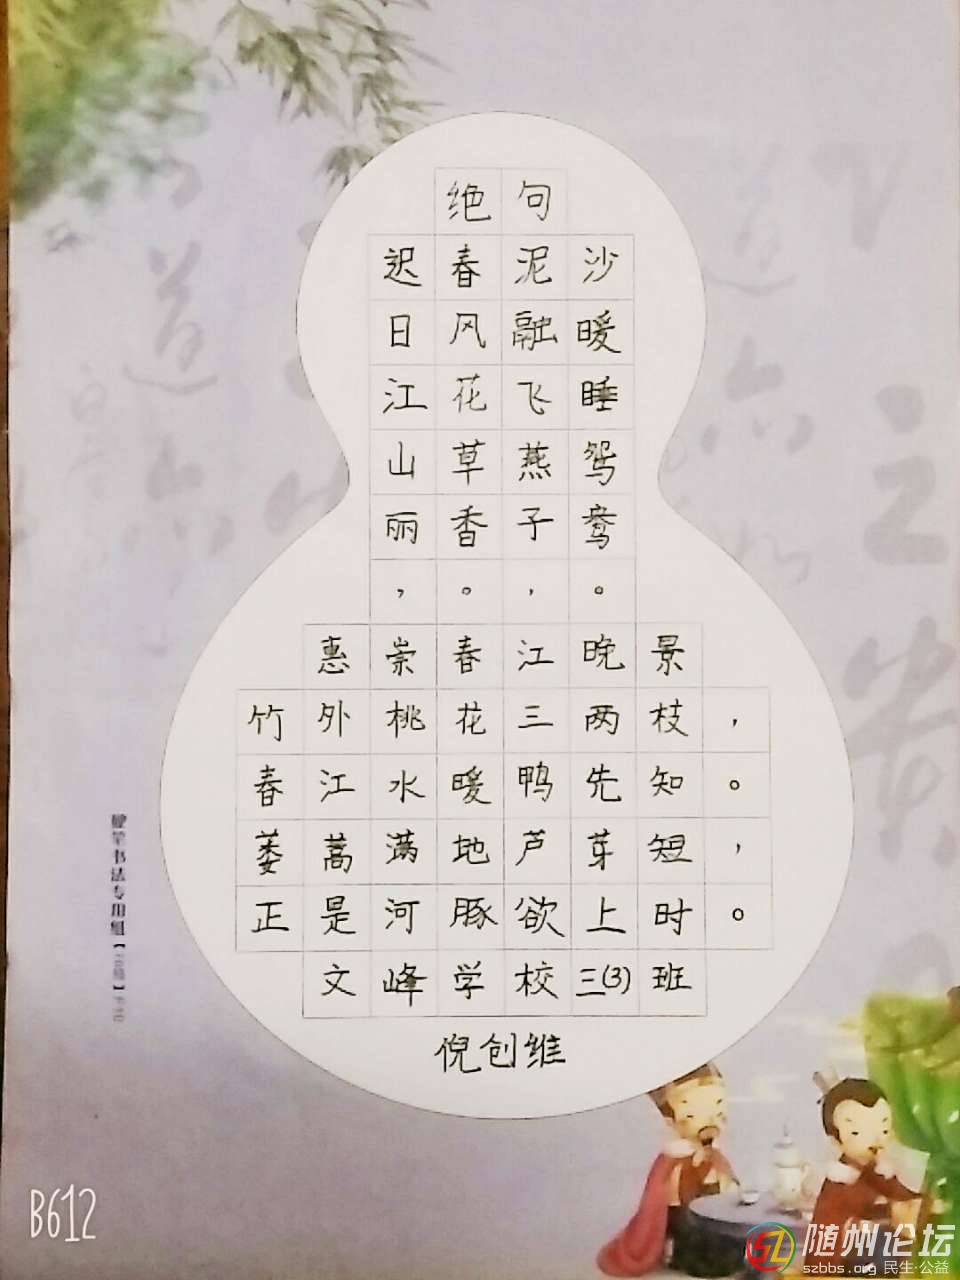 绝句
迟日江山丽，
春风花草香。
泥融飞燕子，
沙暖睡鸳鸯。
惠崇春江晚景
竹外桃花三两枝，
春江水暖鸭先知。
蒌蒿满地芦芽短，
正是河豚欲上时。
文峰学校三(3)班
倪创维
硬笔书法专用
B612
随州论坛
szbbs.org 民生·公益